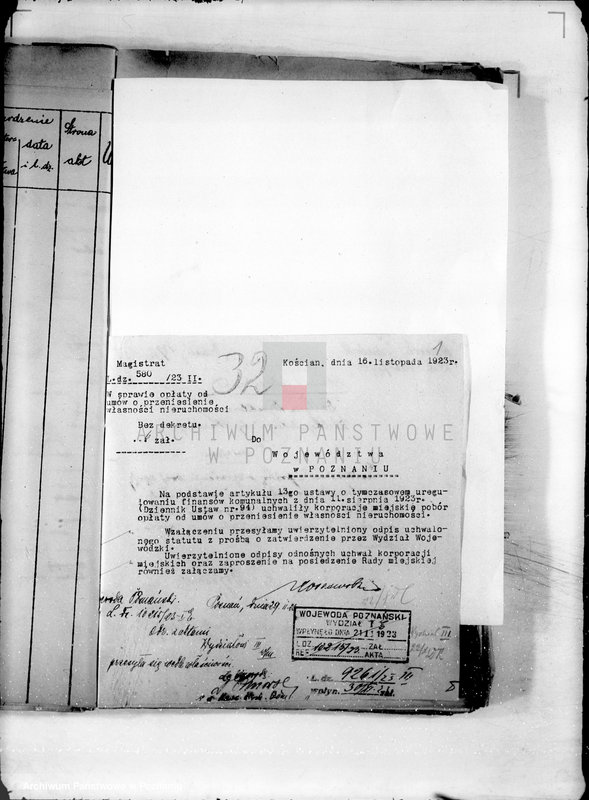 data
i l. dz.
Strona
akt
1
32
Magistrat
Kościan, dnia 16.listopada 1923r.
L.dz. 580 /23 II.
W sprawie opłaty od
umów o przeniesienie
własności nieruchomości
Bez dekretu.
zał.
Do
ARCHIWUM PAŃSTWOWE
W POZNANIU
Województwa
w POZNANIU
Na podstawie artykułu 13go ustawy o tymczasowem uregu-
lowaniu finansów komunalnych z dnia 11.sierpnia 1923r.
(Dziennik Ustaw nr.94) uchwaliły korporacje miejskie pobór
opłaty od umów o przeniesienie własności nieruchomości.
Wzałączeniu przesyłamy uwierzytelniony odpis uchwalo-
nego statutu z prośbą o zatwierdzenie przez Wydział Woje-
wódzki.
Uwierzytelnione odpisy odnośnych uchwał korporacji
miejskich oraz zaproszenie na posiedzenie Rady miejskiej
również załączamy.
WOJEWODA POZNAŃSKI
WYDZIAŁ
WPŁYNĘŁO DNIA 21 11 1923
L.DZ. ZAŁ
REF. AKTA
Poznań,
Wydziałowi III
L. dz. 9261/23 III
wpłyn.
Archiwum Państwowe w Poznaniu